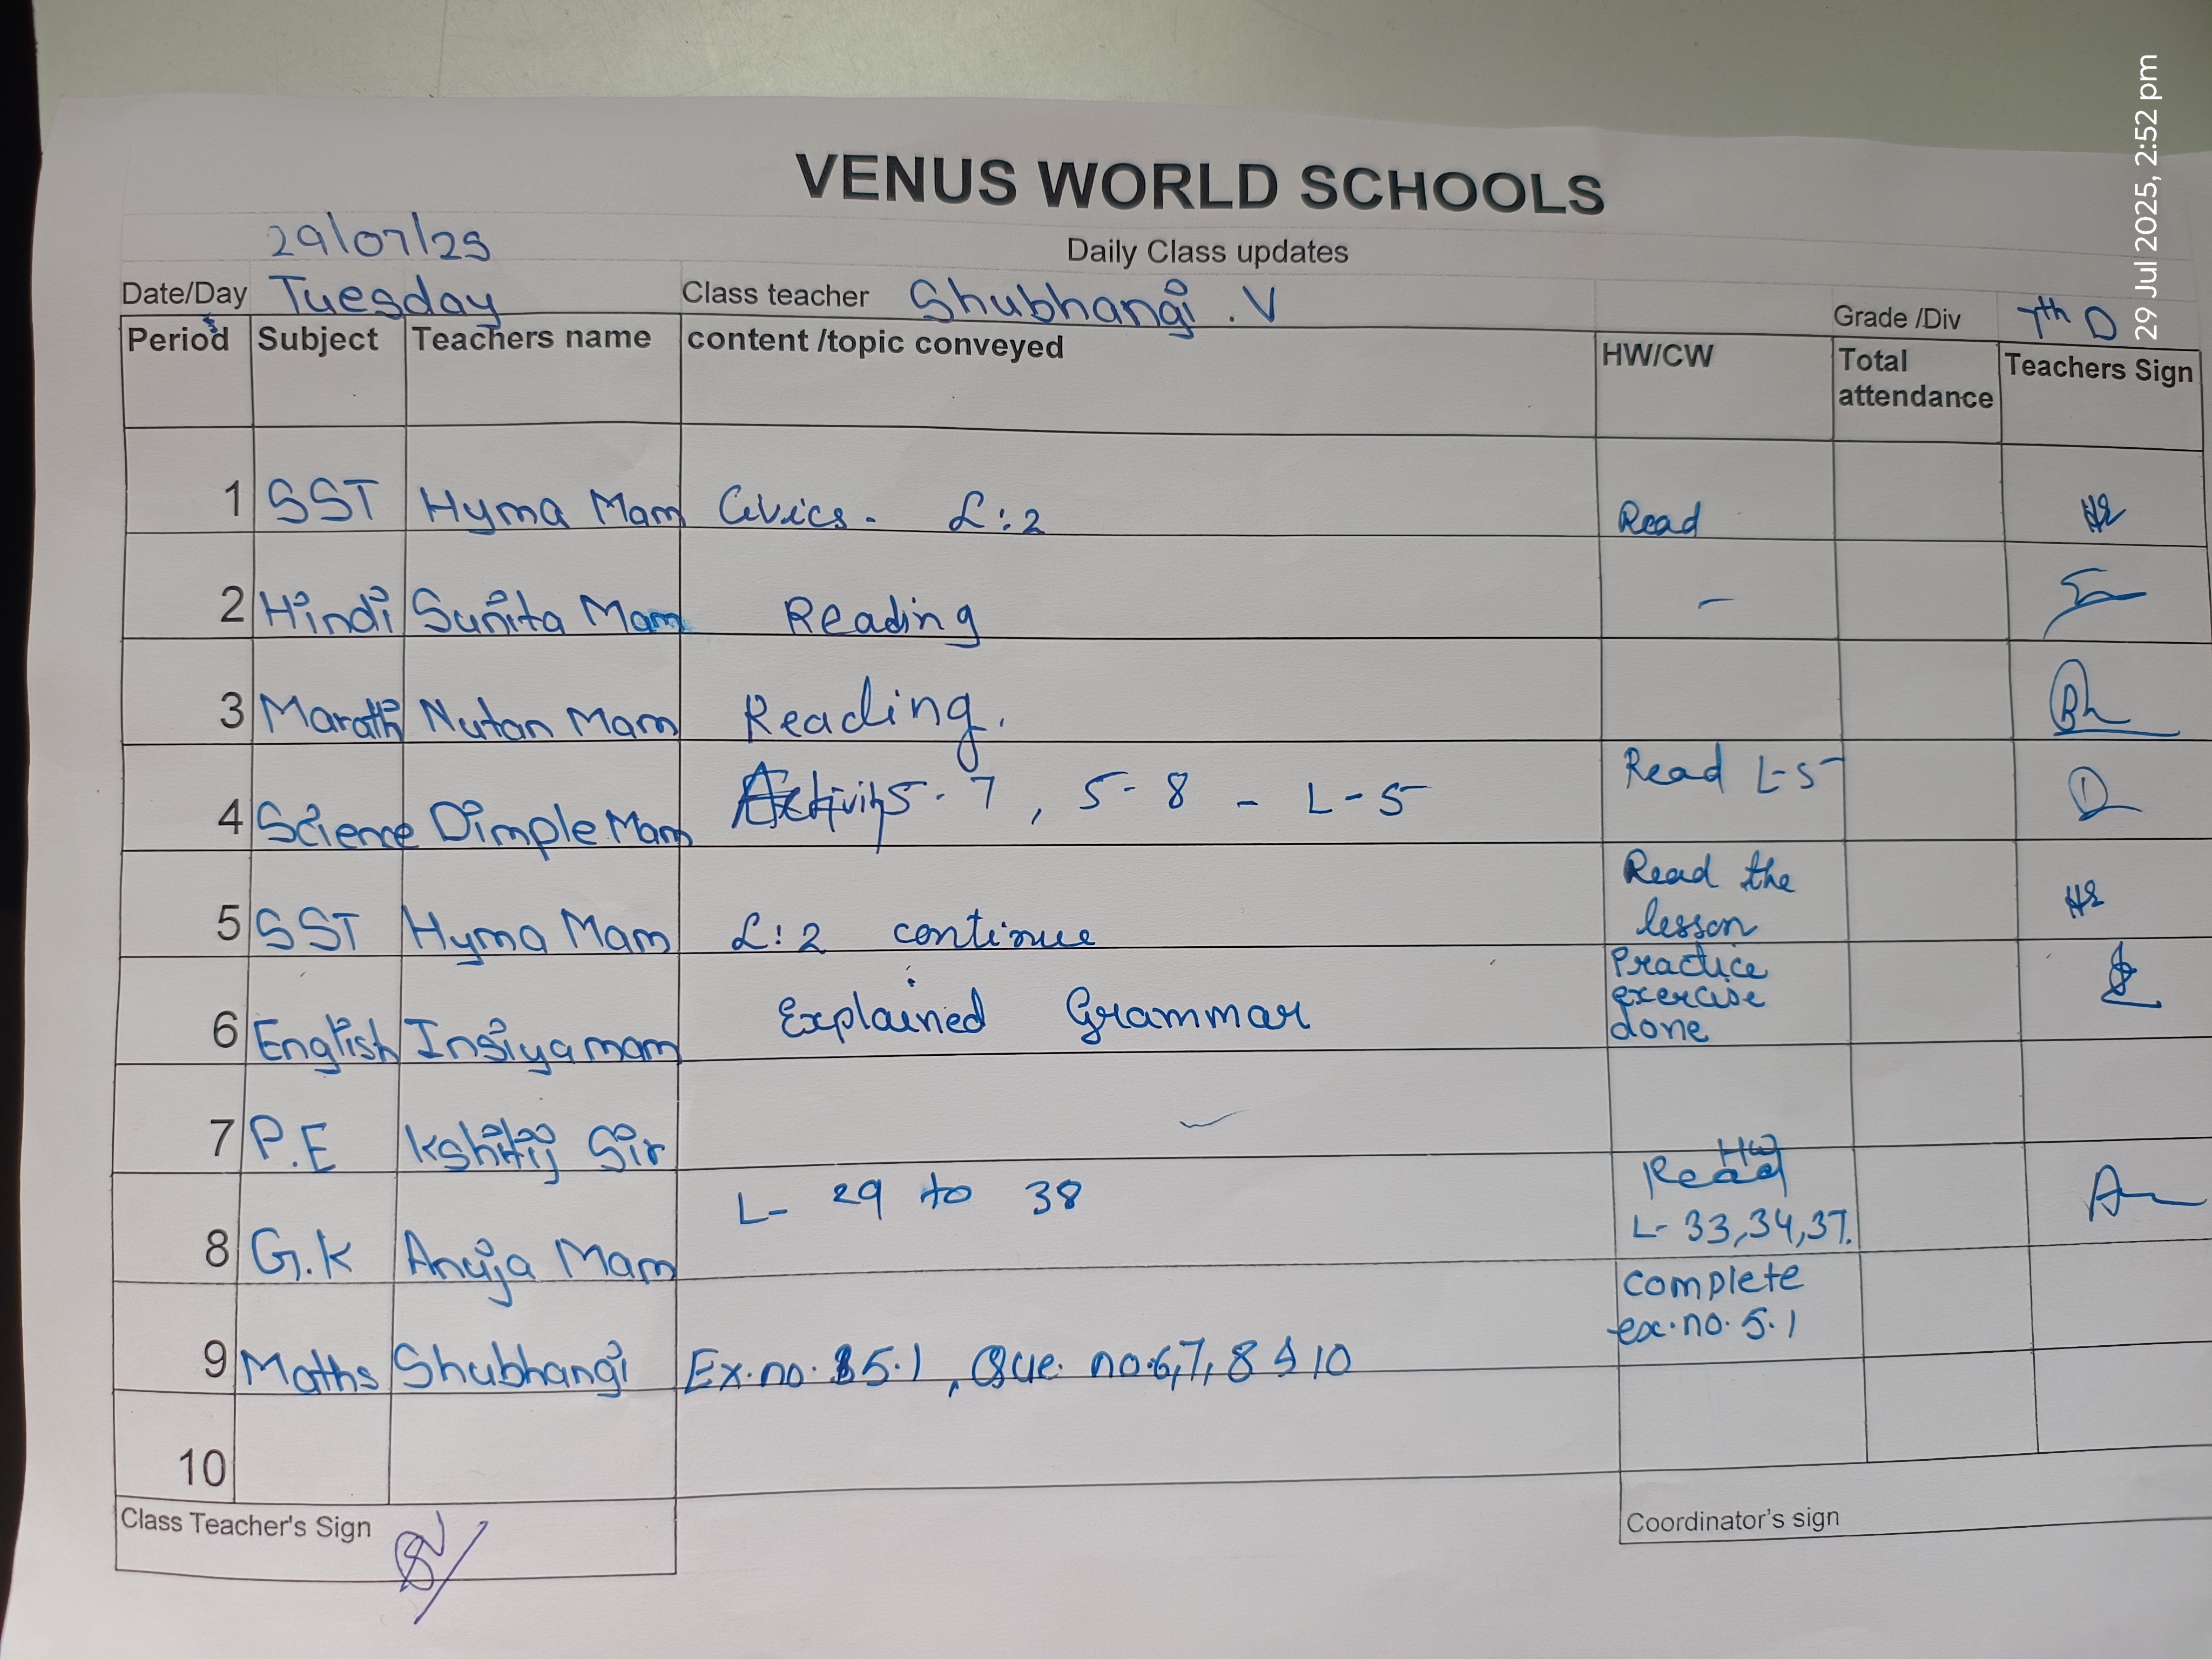 VENUS WORLD SCHOOLS
29/07/25
Daily Class updates
Date/Day Tuesday Class teacher Shubhangi . V Grade /Div 7th D
Period Subject Teachers name content /topic conveyed HW/CW Total attendance Teachers Sign
1 SST Hyma Mam Civics - L:2 Read
2 Hindi Sunita Mam Reading -
3 Marathi Nutan Mam Reading.
4 Science Dimple Mam Activity 5-7 , 5-8 - L-5 Read L-5
5 SST Hyma Mam L:2 continue Read the lesson
6 English Insiya mam Explained Grammar Practice exercise done
7 P.E Kshitij Sir
8 G.K Anuja Mam L- 29 to 38 HW Read L- 33,34,37.
9 Maths Shubhangi Ex.no. 5.1 , Que. no.6,7, 8 & 10 complete ex.no. 5.1
10
Class Teacher's Sign Coordinator's sign
29 Jul 2025, 2:52 pm